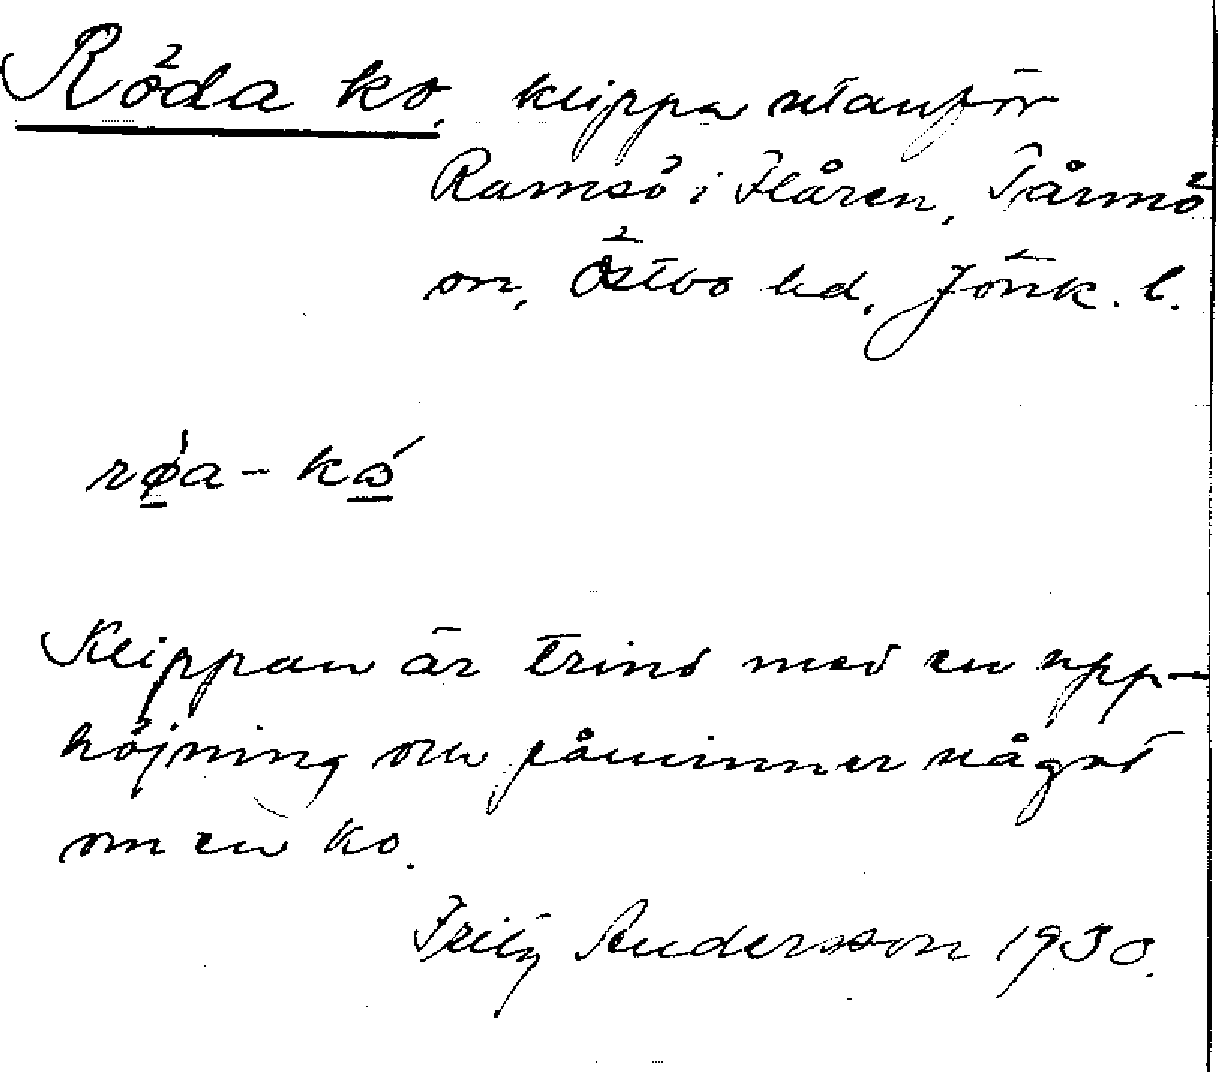 Röda ko, klippa utanför
Ramsö i Flåren, Tånnö
sn, Östbo hd, Jönk. l.
røa - kó
Klippan är trind med en upp-
höjning och påminner något
om en ko.
Fritz Andersson 1930.